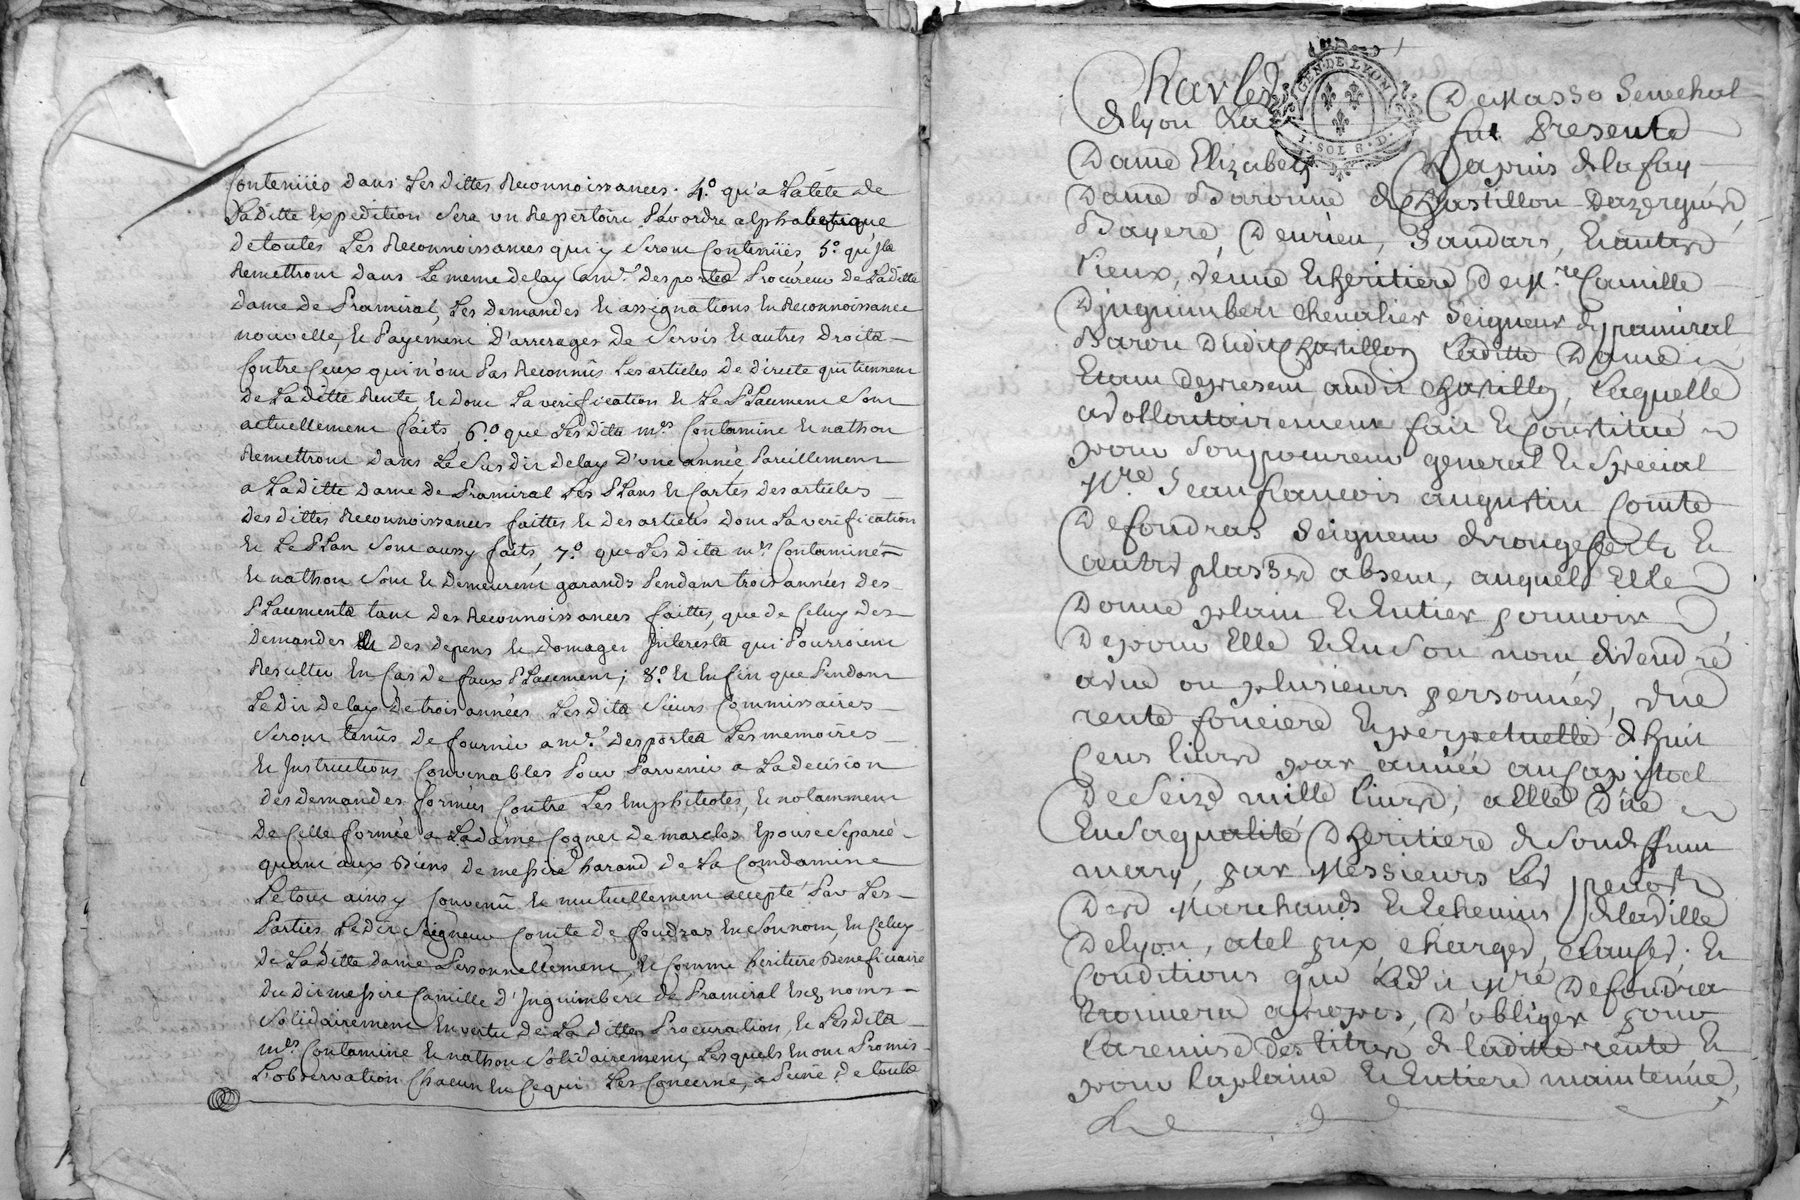 Contenües dans Les dittes Reconnoissances. 4.º qu'a La tête de
La ditte Expedition sera un Repertoire Par ordre alphabetique
de toutes Les Reconnoissances qui y seront Contenües, 5.º qu'Ils
Remettront dans Le meme delay a m.r Desportes Procureur de La ditte
dame de Pramiral, Les demandes et assignations en Reconnoissance
nouvelle, et Payement D'arrerages de Servis et autres Droits
Contre Ceux qui n'ont Pas Reconnûs Les articles De directe qui tiennent
de La ditte Rente et dont La verification et Le Placement Sont
actuellement faits, 6.º que Les dits m.rs Contamine et nathon
Remettront dans Le Sus dit delay D'une année Pareillement
a La ditte dame de Pramiral Les Plans et Cartes des articles
des dittes Reconnoissances faittes et des articles dont La verification
et Le Plan Sont aussy faits, 7.º que Les dits m.rs Contamine
et nathon Sont et Demeurent garands Pendant trois années des
Placements tant des Reconnoissances faittes, que de Celuy des
demandes et des depens et domages Interests qui Pourroient
Resulter en Cas de faux Placement; 8.º et enfin que Pendant
Le dit delay de trois années Les dits Sieurs Commissaires
Seront tenûs de fournir a m.r Desportes Les memoires
et Instructions Convenables Pour Parvenir a La decision
des demandes formées Contre Les Emphiteotes, et notamment
de Celle formée a La dame Cognet de marclos Epouse Separée
quant aux Biens de messire harand de La Comdamine
Le tout ainsy Convenû et mutuellement accepté Par Les
Parties Le dit Seigneur Comte de foudras en Son nom, en Celuy
de La ditte dame Personnellement, et Comme heritiere Beneficiaire
du dit messire Camille d'Inguimbert de Pramiral Esq. noms
Solidairement en vertu de La ditte Procuration, et Les dits
m.rs Contamine et nathon Solidairement, Lesquels en ont Promis
L'observation Chacun en Ce qui Les Concerne, a Peine de touts
GEN. DE LYON
1. SOL 8. D.
Charles De Masso Senechal
de lyon fut Presente
Dame Elizabeth Dapuis de la fay
Dame Baronne de Chastillon Dazergues
Bayere, Deurieu, Gandars, et autres
Lieux, veuve et heritiere de M.re Camille
D'juguimbert chevalier Seigneur de pramiral
Baron Dudit Chastillon Laditte Dame
Etant de present audit Chatillon, Laquelle
a vollontairement fait et Constitué
pour Son procureur general et Special
M.re Jean francois augustin Comte
De foudras Seigneur de
autres plasses absent, auquel Elle
Donne plain et Entier pouvoir
De pour Elle et En Son nom de vendre
a une ou plusieurs personnes, une
rente fonciere et perpetuelle de huit
Cens livres par année au Capital
De Seize mille livres, a Elle Due
En Sa qualité D'heritiere de Son deffunt
mary, par Messieurs Les prevost
Des Marchands Et Echevins de la ville
De lyon, a tel prix, charges, clauses, et
Conditions que Ledit M.re De foudras
trouvera apropos, D'obliger pour
La remise des titres de laditte rente et
pour la plaine Et Entiere maintenüe,